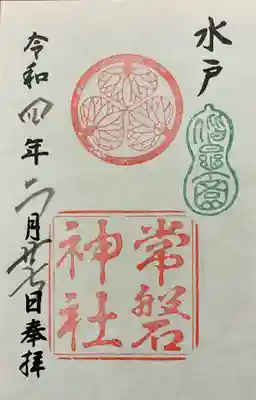 水戸
常磐
神社
令和四年二月廿七日奉拝